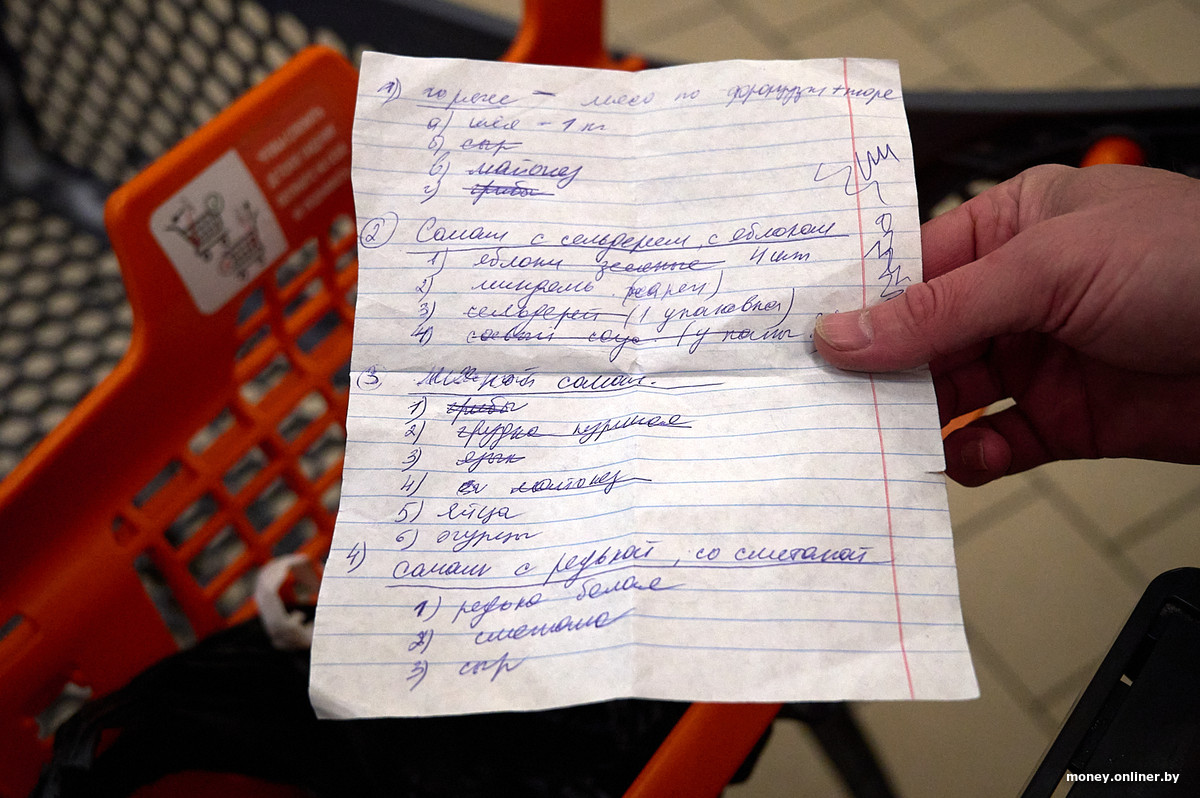 1) горяче - мясо по французки + пюре
а) шея - 1 кг
б) сыр
в) майонез
г) грибы
2 Салат с сельдереем, с яблоком
1) яблоки зеленые 4 шт
2) миндаль (жарен)
3) сельдерей (1 упаковка)
4) соевый соус. (у папы
3 салат.
1) грибы
2) грудка куриная
3) язык
4) майонез
5) яйца
6) огурцы
4) Салат с редькой, со сметаной
1) редька белая
2) сметана
3) сыр
money.onliner.by